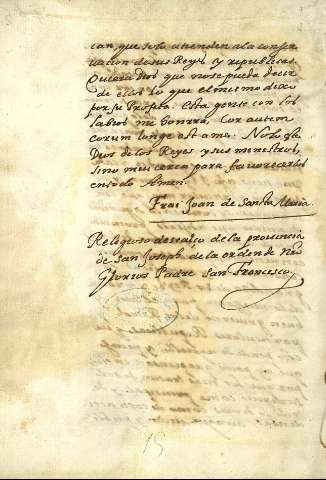 can, que solo atienden a la conser
uacion de sus Reyes y republicas.
Quiera Dios que no se pueda decir
de ellos lo que el mismo dixo
por su Profeta. Esta gente con los
labios me honrra, Cor autem
eorum longe est ame. No lo esta
Dios de los Reyes y sus ministros,
sino muy cerca para fauorecerlos
en todo Amen.
Frai Joan de Sancta Maria.
Religioso descalço de la prouincia
de san Joseph. de la orden de Nro
Glorios Padre San Francesco.
15